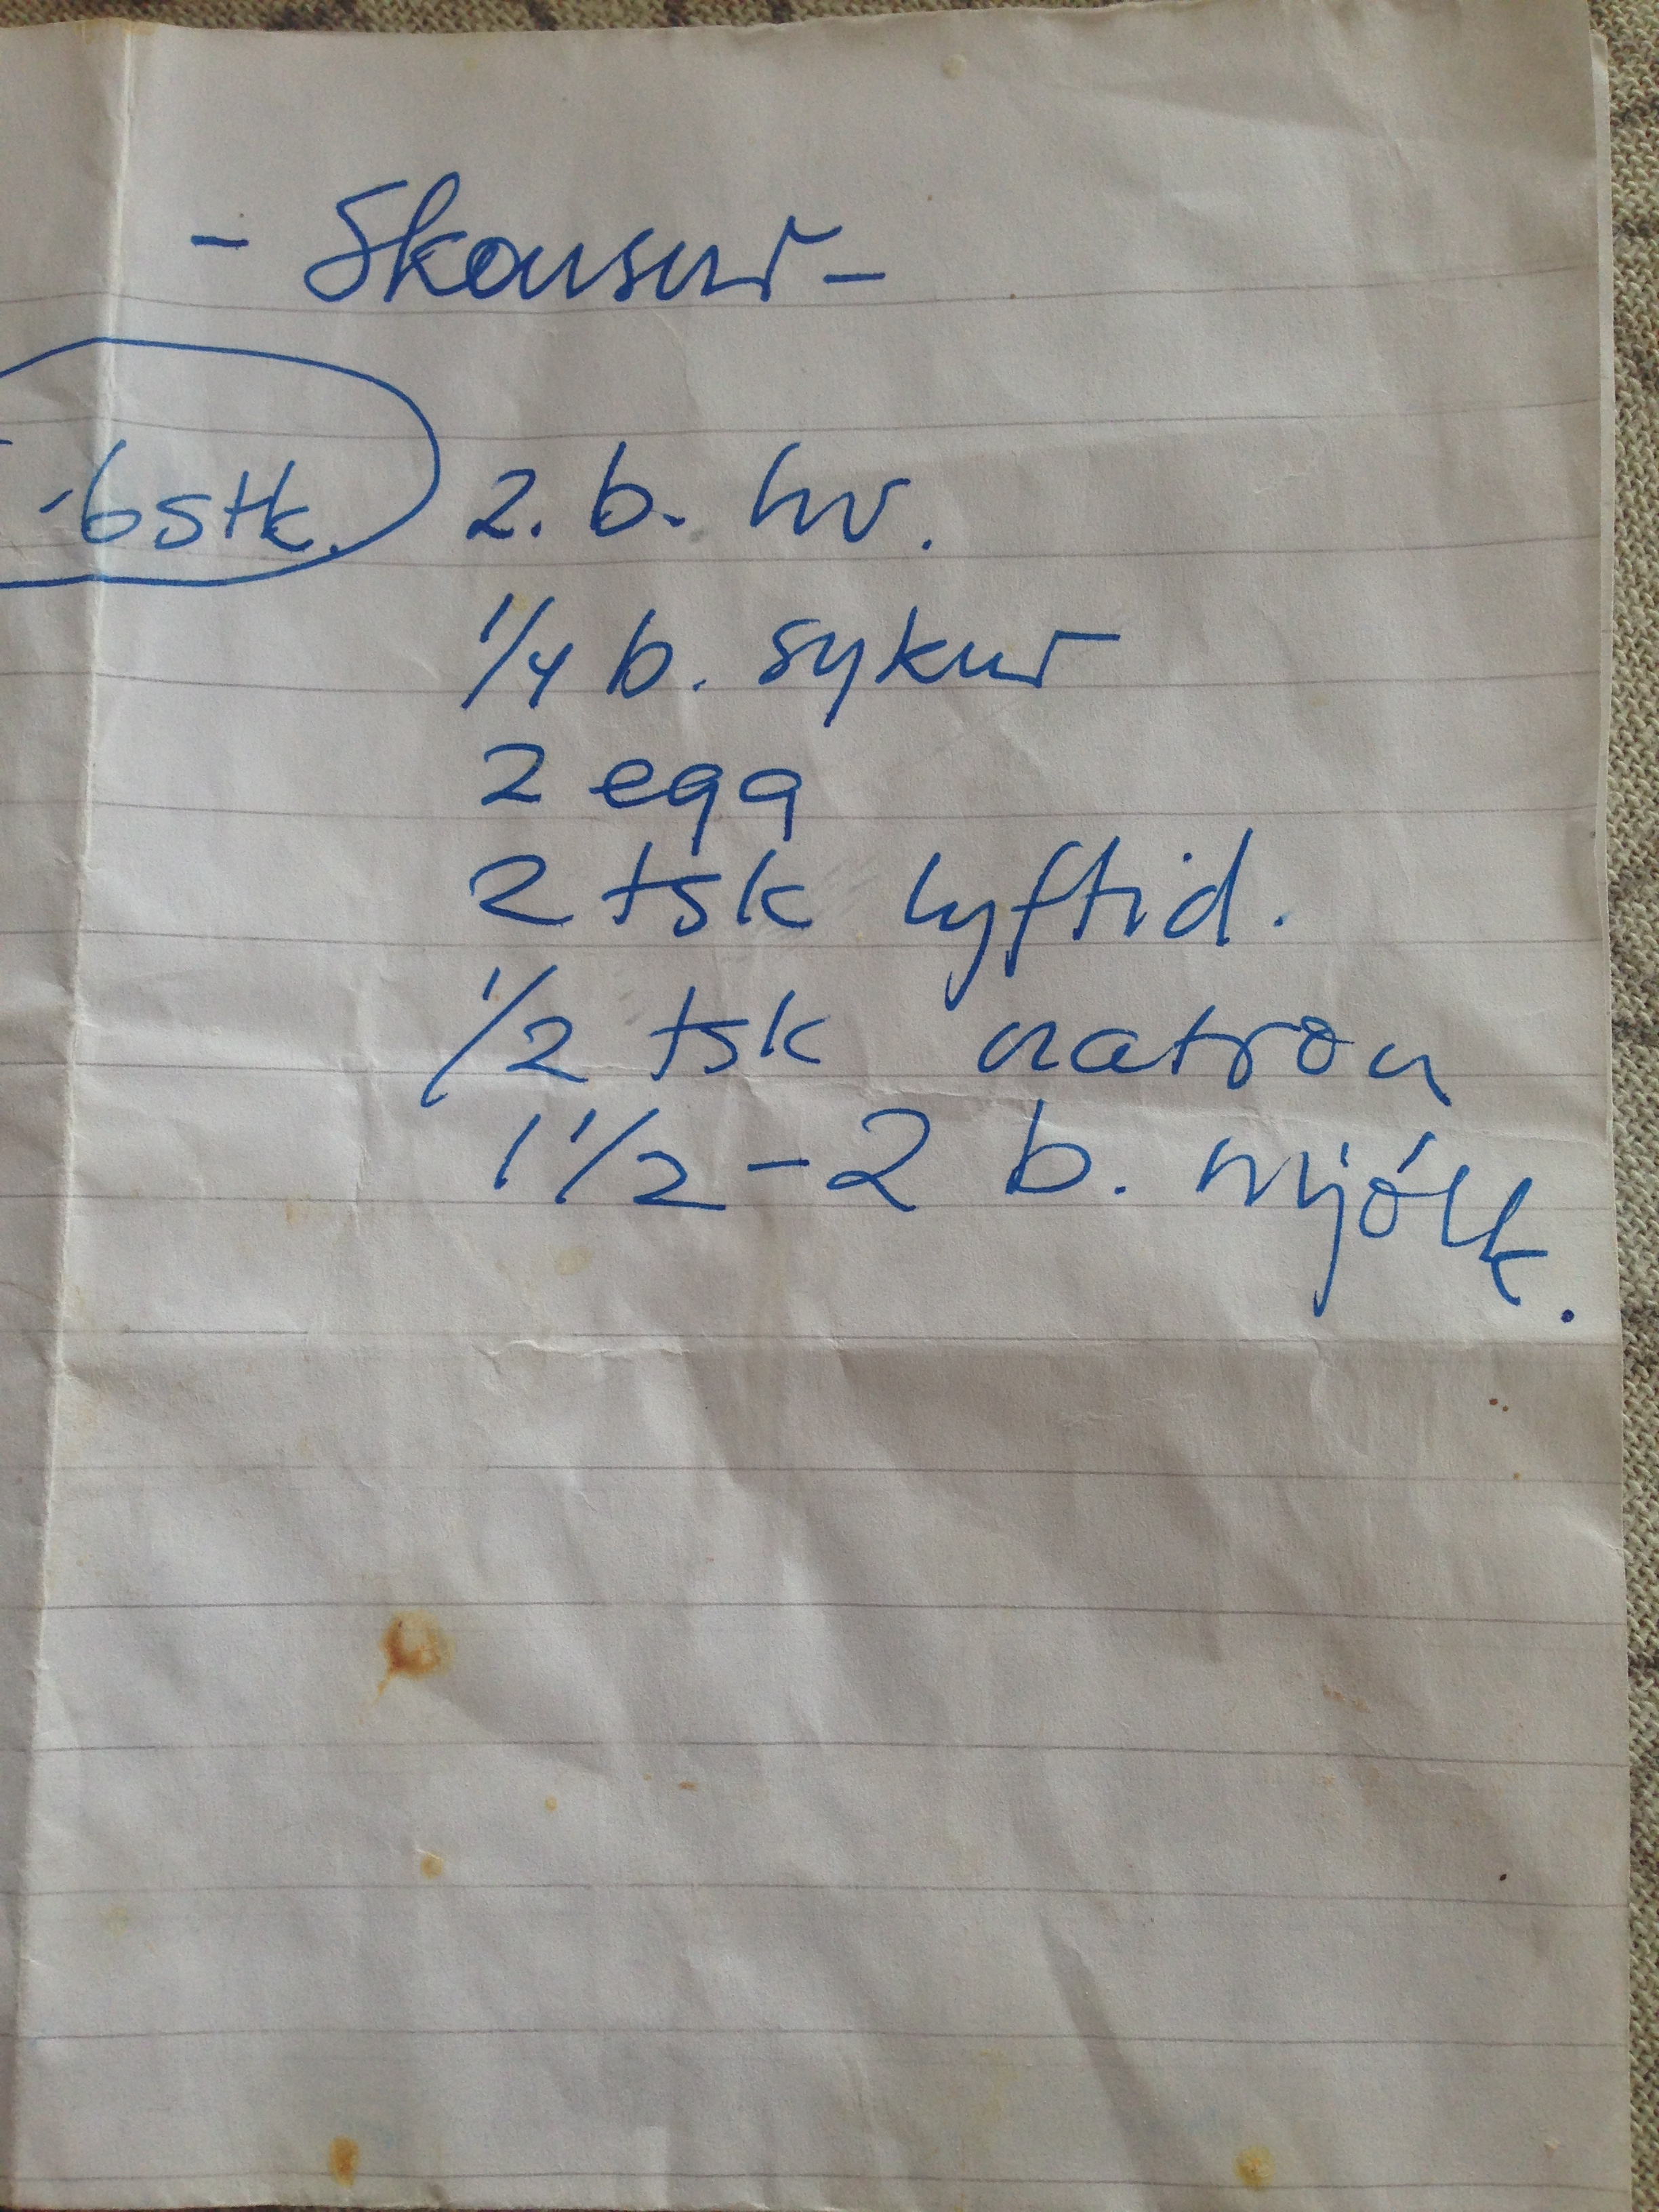 - Skonsur -
- 6 stk.
2. b. hv.
1/4 b. sykur
2 egg
2 tsk lyftid.
1/2 tsk natron
1 1/2 - 2 b. mjólk.